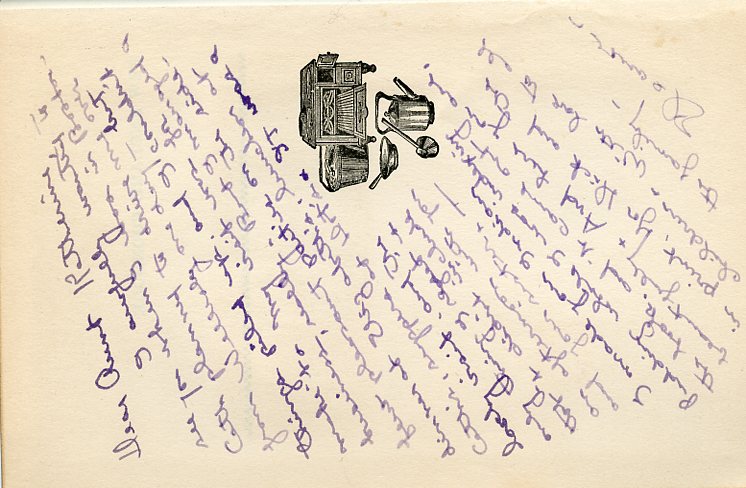 Dear Aunt Katherine,
I awfully wanted to
see you when I was in Boston.
Cath planned to drive me over
from Wellesley one day - but
things piled up, and I couldn't
make it. My visit was for
business, really. But I managed a
few pleasant parties on the side -
dinner at Elizabeth's, luncheon at
Cath's, supper at It was a
lovely visit, and the
only thing I regret is
that it didn't include
an afternoon with you
and your sister. -
I made your Indian
Pudding while I was indexing
the book, and it came out
beautifully. And here you are,
in print, for Dick and the
children. With love to all
the family -
Eleanor -